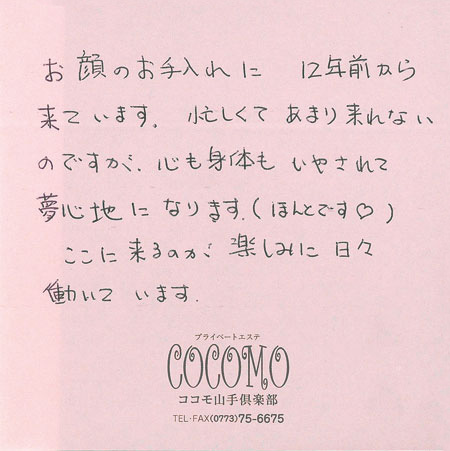 お顔のお手入れに 12年前から
来ています。 忙しくて あまり来れない
のですが、心も身体も いやされて
夢心地に なります。(ほんとです♡)
ここに 来るのが 楽しみに 日々
働いて います.
プライベートエステ
COCOMO
ココモ山手倶楽部
TEL・FAX(0773)75-6675